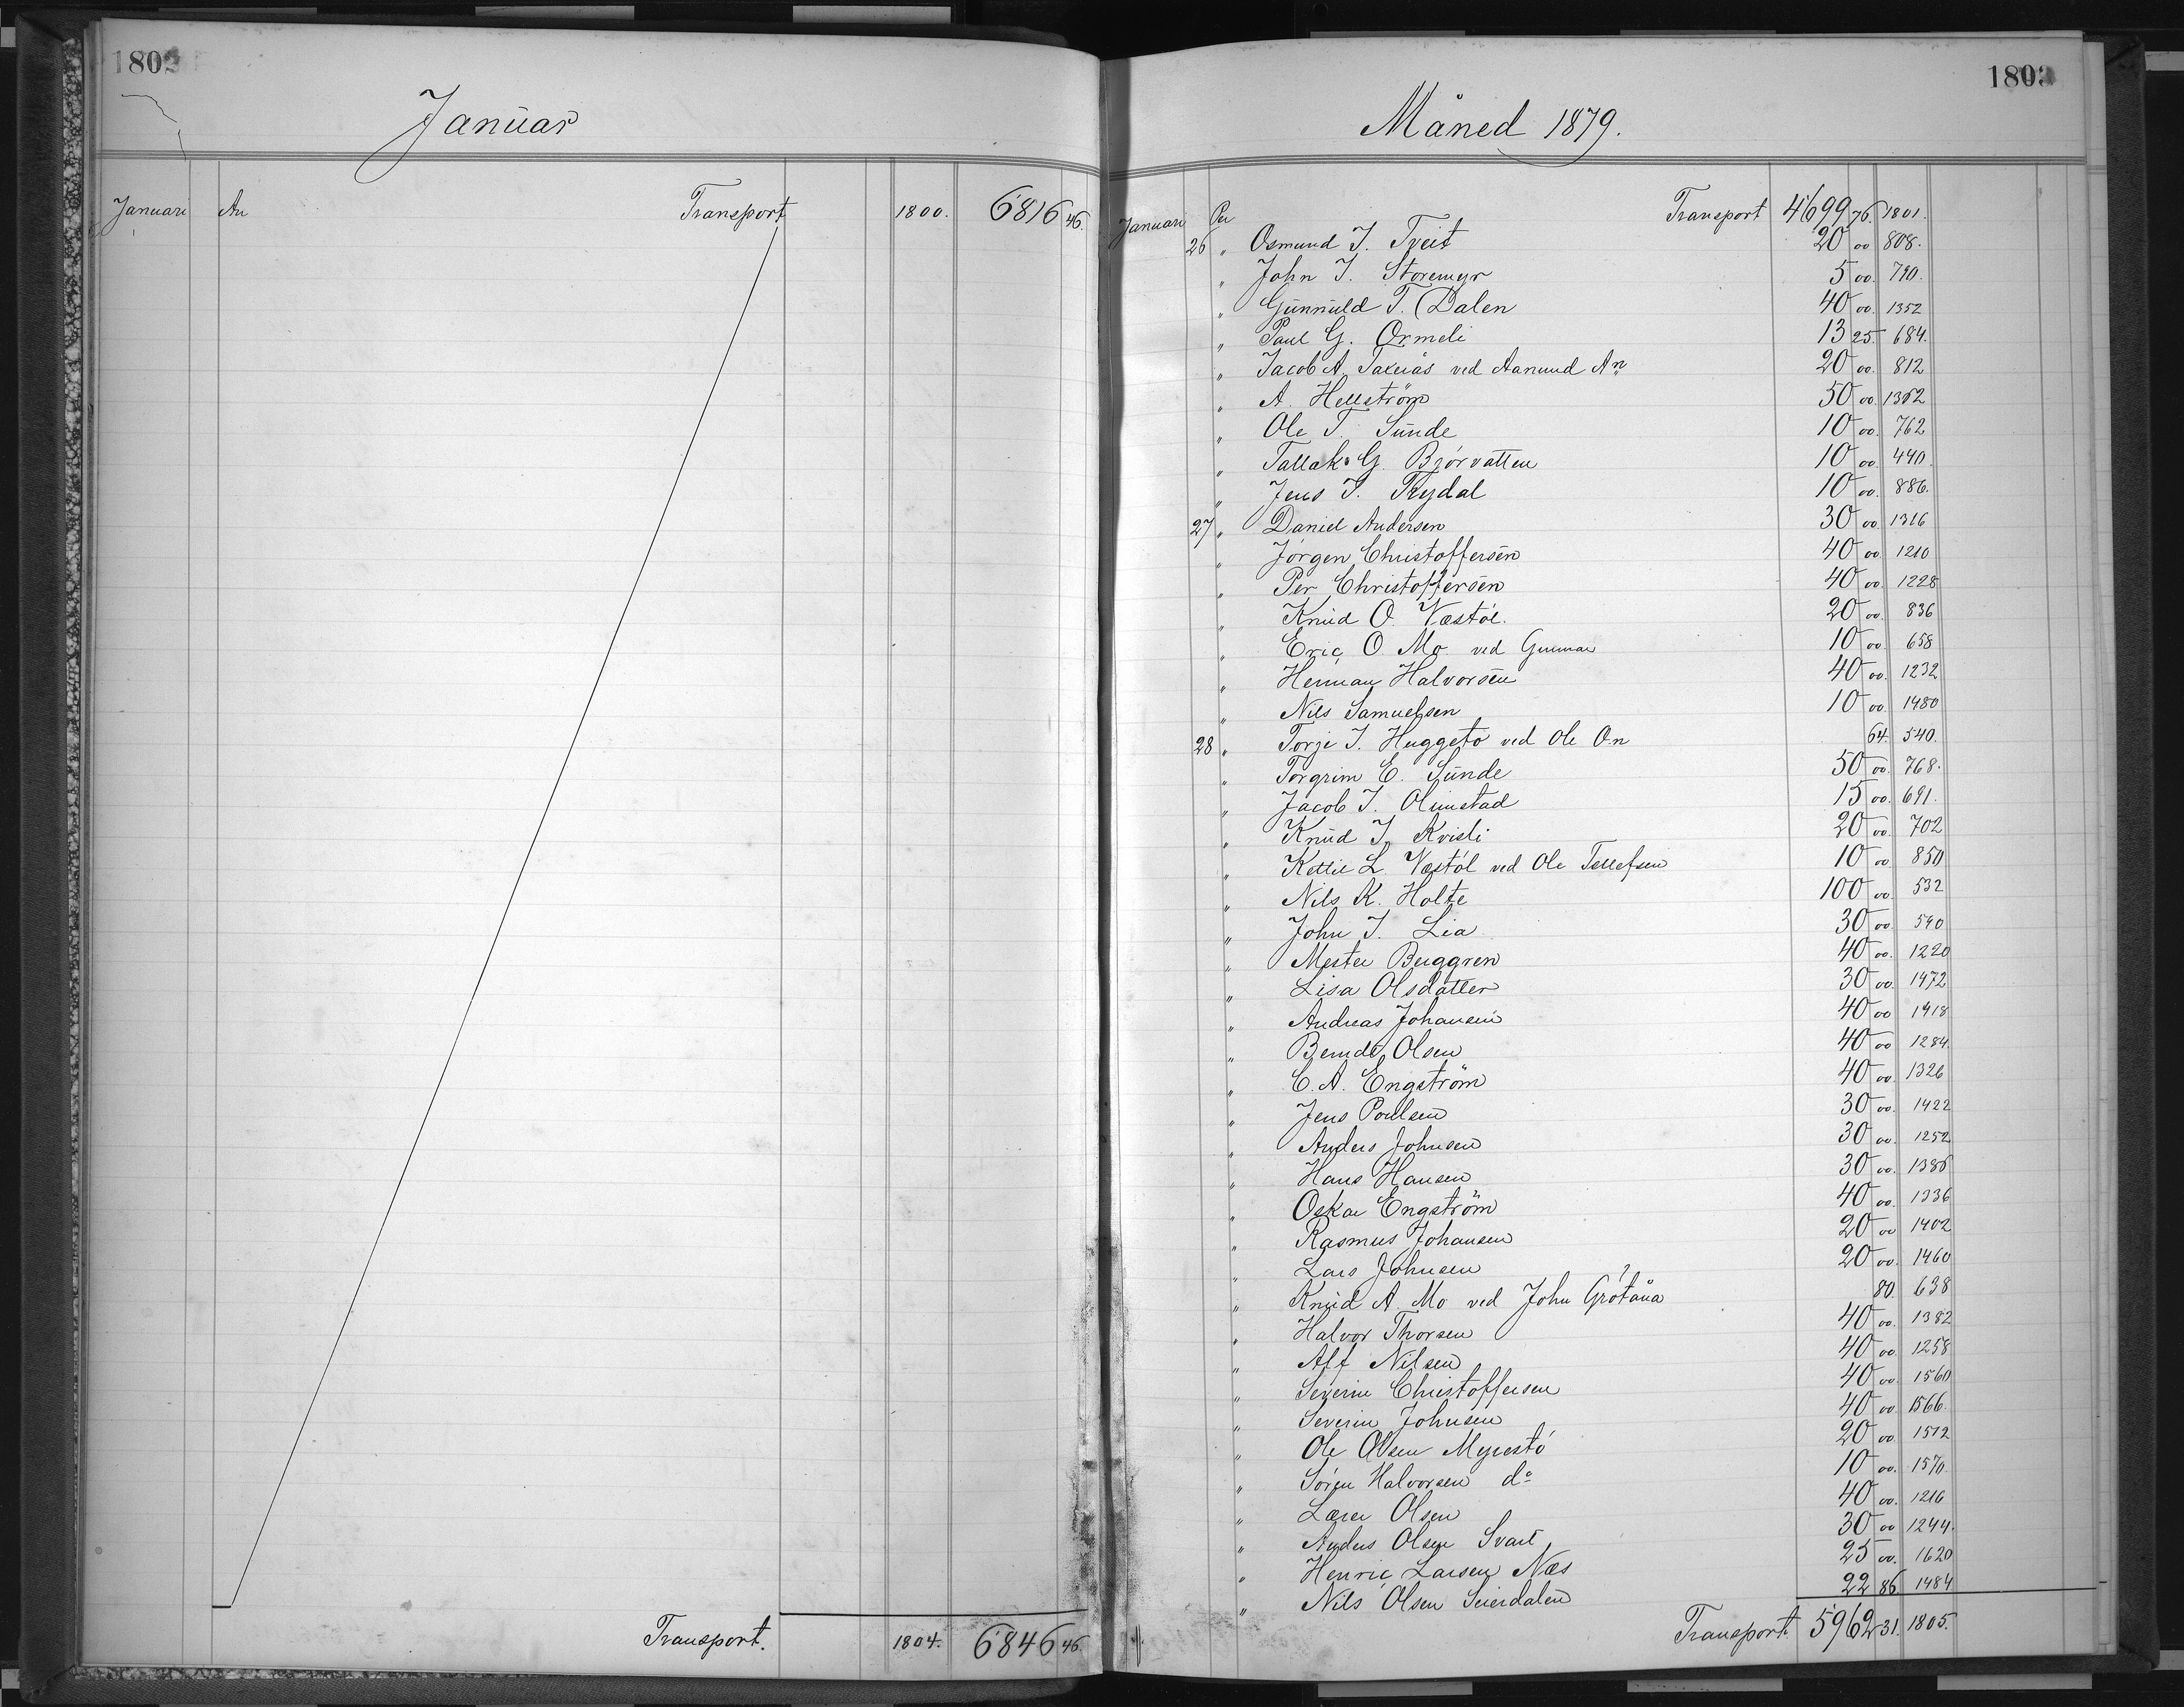 1802
Januar
Januari An Transport 1800. 6816 46.
Transport. 1804. 6846 46.
1803
Måned 1879.
Januari Per Transport 4699 76. 1801.
26 " Osmund T. Tveit 20 00 808.
" John T. Storemyr 5 00. 790.
" Gunnuld T. Dalen 40 00. 1352
" Paul G. Ormeli 13 25. 684.
" Jacob A. Taxeiås ved Aanund An 20 00. 812
" A. Hellström 50 00. 1362
" Ole T. Sunde 10 00. 762
" Tallak G. Björvatten 10 00. 440.
" Jens T. Trydal 10 00. 886.
27 " Daniel Andersen 30 00. 1316
" Jörgen Christoffersen 40 00. 1210
" Per Christoffersen 40 00. 1228
" Knud O. Væstöl. 20 00. 836
" Eric O. Mo ved Gunnar 10 00. 658
" Herman Halvorsen 40 00. 1232
" Nils Samuelsen 10 00. 1480
28 " Torje T. Huggeto ved Ole O.n 64. 540.
" Torgrim E. Sunde 50 00. 768.
" Jacob T. Olimstad 15 00. 691.
" Knud T. Kvisli 20 00. 702
" Kettil L. Væstöl ved Ole Tellefsen 10 00 850
" Nils K. Holte 100 00. 532
" John T. Lia 30 00. 590
" Mester Berggren 40 00. 1220
" Lisa Olsdatter 30 00. 1472
" Andreas Johansen 40 00 1418
" Berndt Olsen 40 00 1284.
" C. A. Engström 40 00. 1326
" Jens Poulsen 30 00. 1422
" Anders Johnsen 30 00. 1252
" Hans Hansen 30 00. 1386
" Oskar Engström 40 00. 1336
" Rasmus Johansen 20 00 1402
" Lars Johnsen 20 00. 1460
" Knud A. Mo ved John Grötåna ? 80. 638
" Halvor Thorsen 40 00. 1382
" Alf Nilsen 40 00 1258
" Severin Christoffersen 40 00 1560
" Severin Johnsen 40 00 1566.
" Ole Olsen Myrestö 20 00. 1512
" Sören Halvorsen do 10 00. 1570.
" Lærer Olsen 40 00. 1216
" Anders Olsen Svart 30 00 1244.
" Henric Larsen Næs 25 00. 1620
" Nils Olsen Seierdalen 22 86. 1484
Transport 5962 31. 1805.